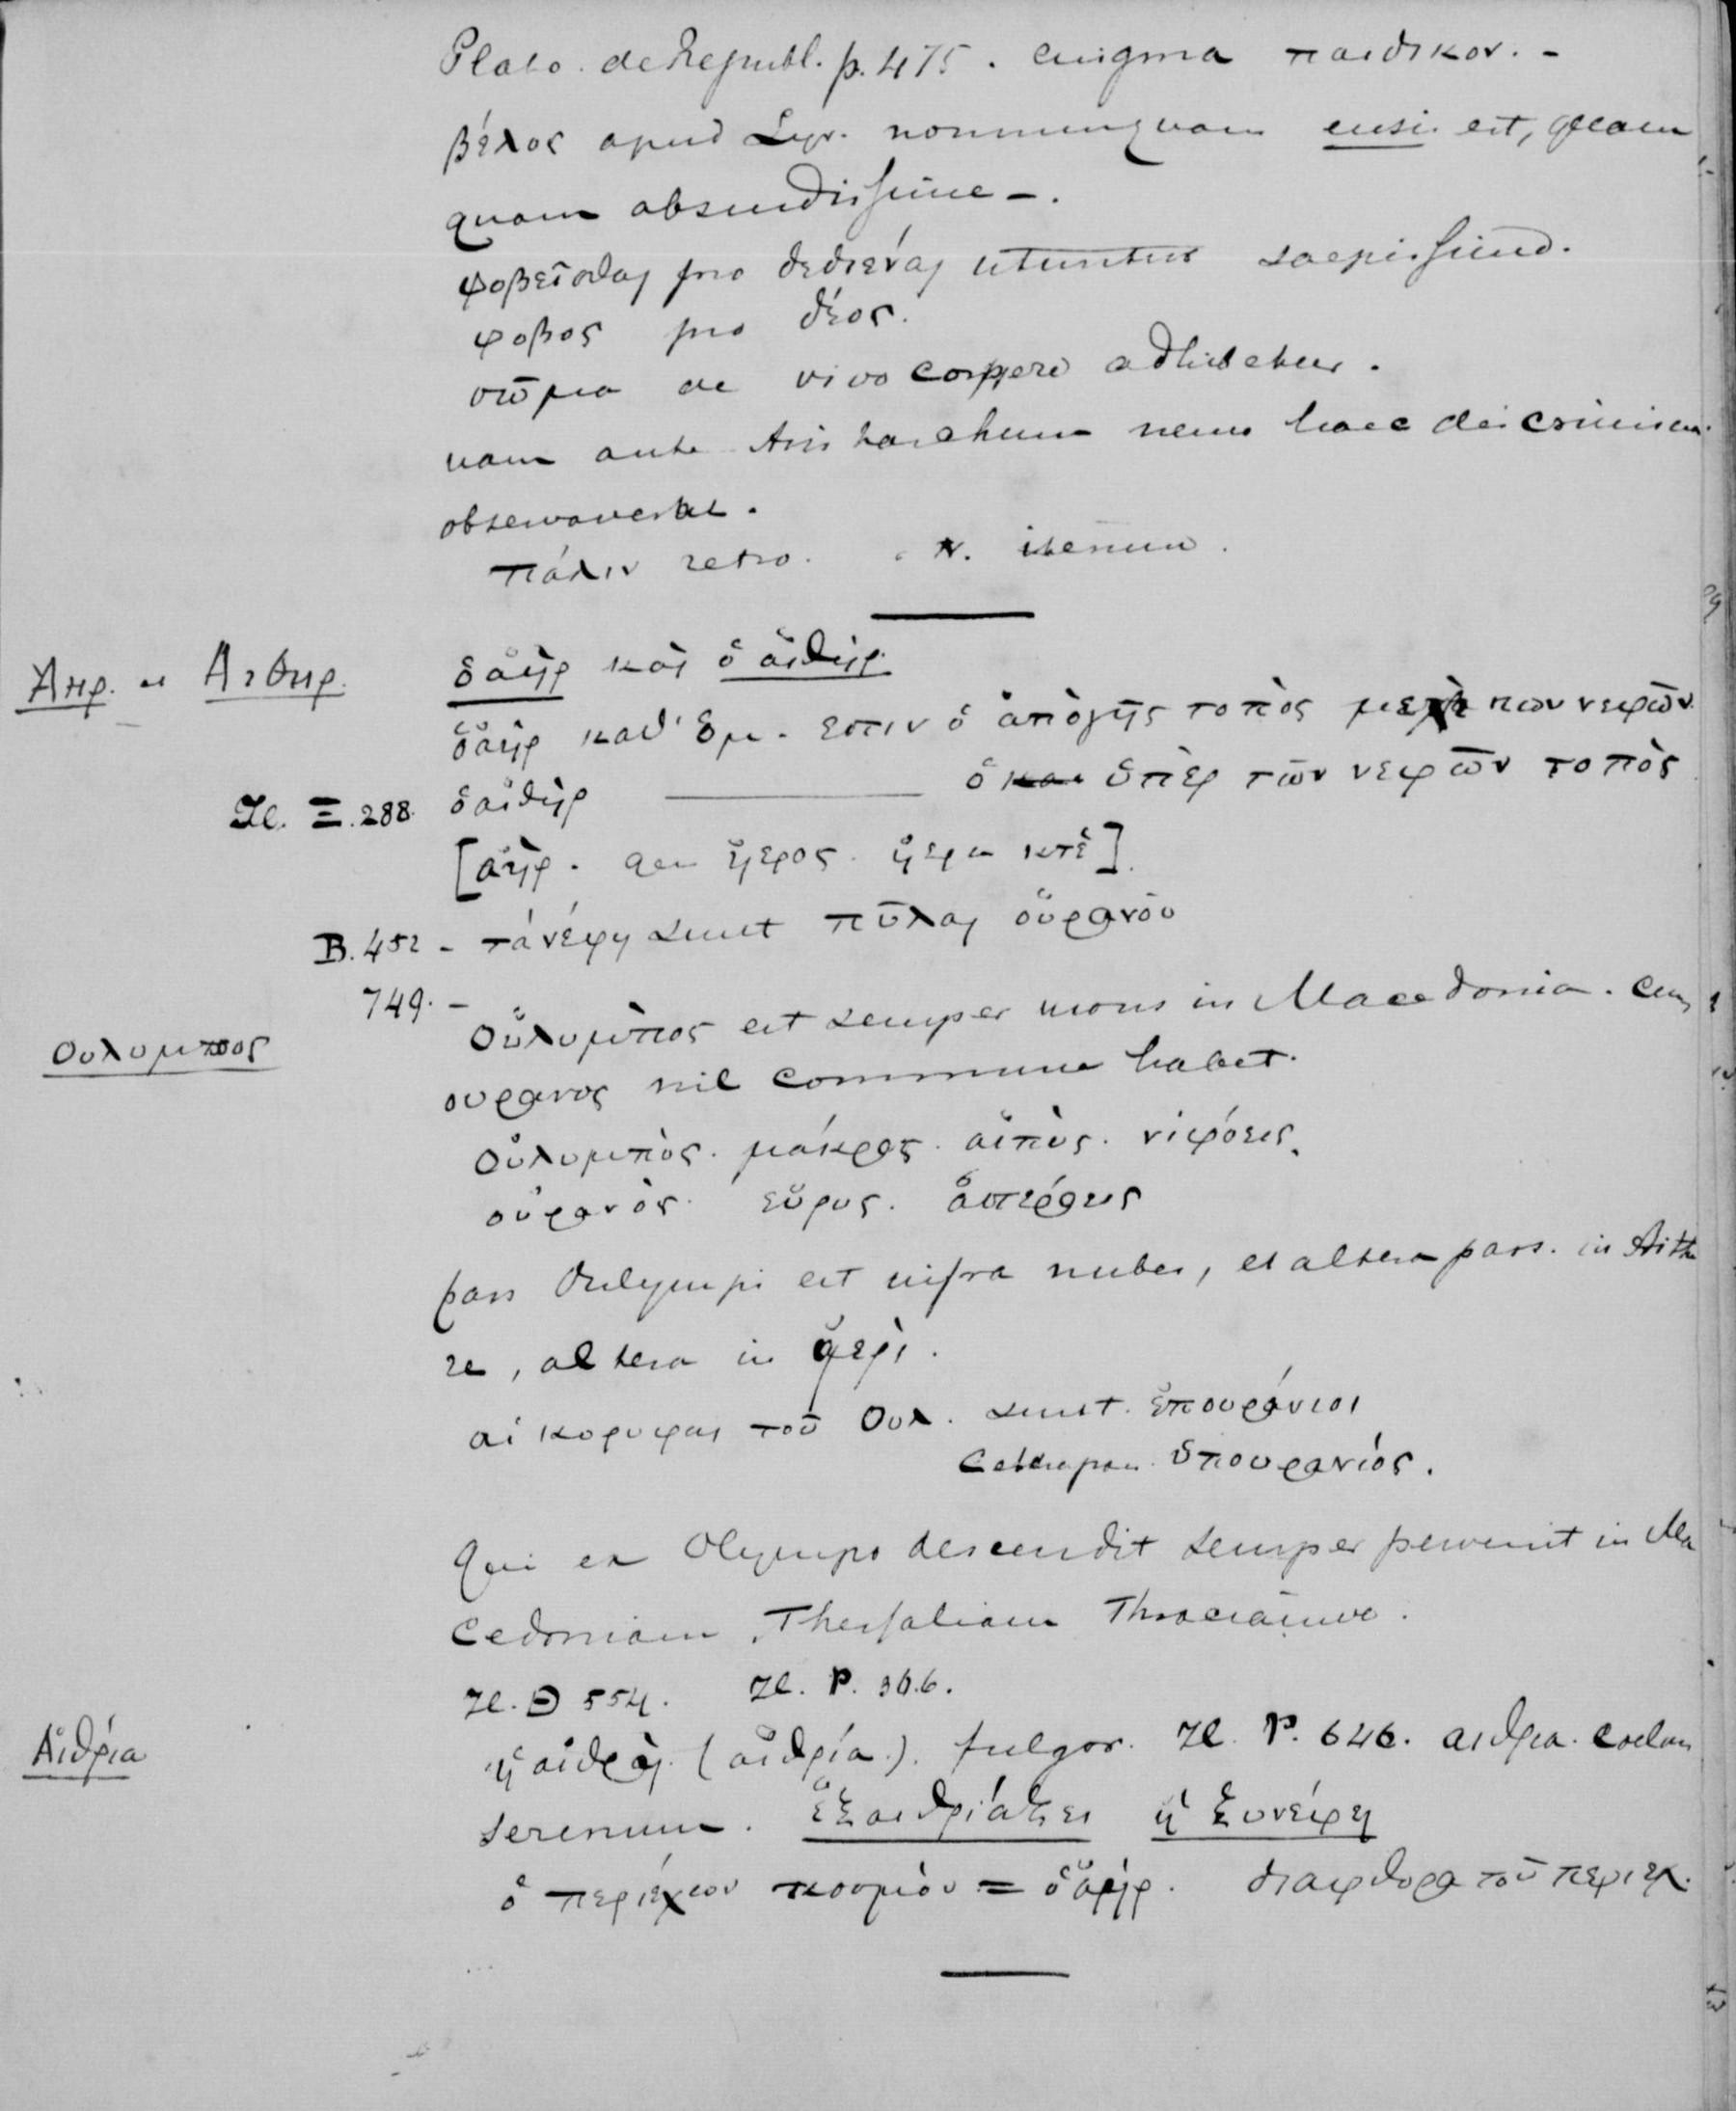 Plato. de Republ. p. 475. enigma παιδικον. -
βέλος apud Lyr. nonnunquam ensis est, quam
quam absurdissime -.
φοβεῖσθαι pro δεδιέναι utuntur saepissime.
φοβος pro δέος.
σῶμα de vivo corpore adhibetur.
nam ante Aristarchum nemo haec discrimina
observaverat.
πάλιν retro. iterum.
Αηρ. et Αιθηρ. ὁ ἀὴρ καὶ ὁ αἰθὴρ.
ὁ ἀὴρ καθ' Ὁμ. εστιν ὁ ἀπὸ γῆς τοπὸς μεχρι των νεφῶν
Il. Ξ. 288. ὁ αἰθὴρ ——— ὁ ὑπὲρ τῶν νεφῶν τοπὸς
[ἀὴρ. gen ἠερος. ἠερι κτἑ].
B. 452 - τά νέφη sunt πῦλαι οὐρανοῦ
749. -
Ουλυμπος Οὔλυμπος est semper mons in Macedonia. Cum
ουρανος nil commune habet.
Οὐλυμπὸς. μάκρος. αἰπὺς. νιφόεις.
οὐρανὸς. εὔρυς. ἀστερόεις
pars Oulympi est infra nubes, et altera pars. in Aithe
re, altera in ἠερι.
αἱ κορυφαι τοῦ Ουλ. sunt. ἐπουράνιοι
Cetera pars. ὑπουρανιός.
Qui ex Olympo descendit semper pervenit in Ma
cedoniam, Thessaliam Thraciamve.
Il. Θ 554. Il. Ρ. 366.
Αἰθρία ἡ αἰθρὰ. (αἰθρία). fulgor. Il. Ρ. 646. αιθρια. coelum
serenum. ἐξαιθριάζει ἡ ξυνέφη
ὁ περιέχων κοσμὸν = ὁ ἀὴρ. διαφθορα τοῦ περιεχ.